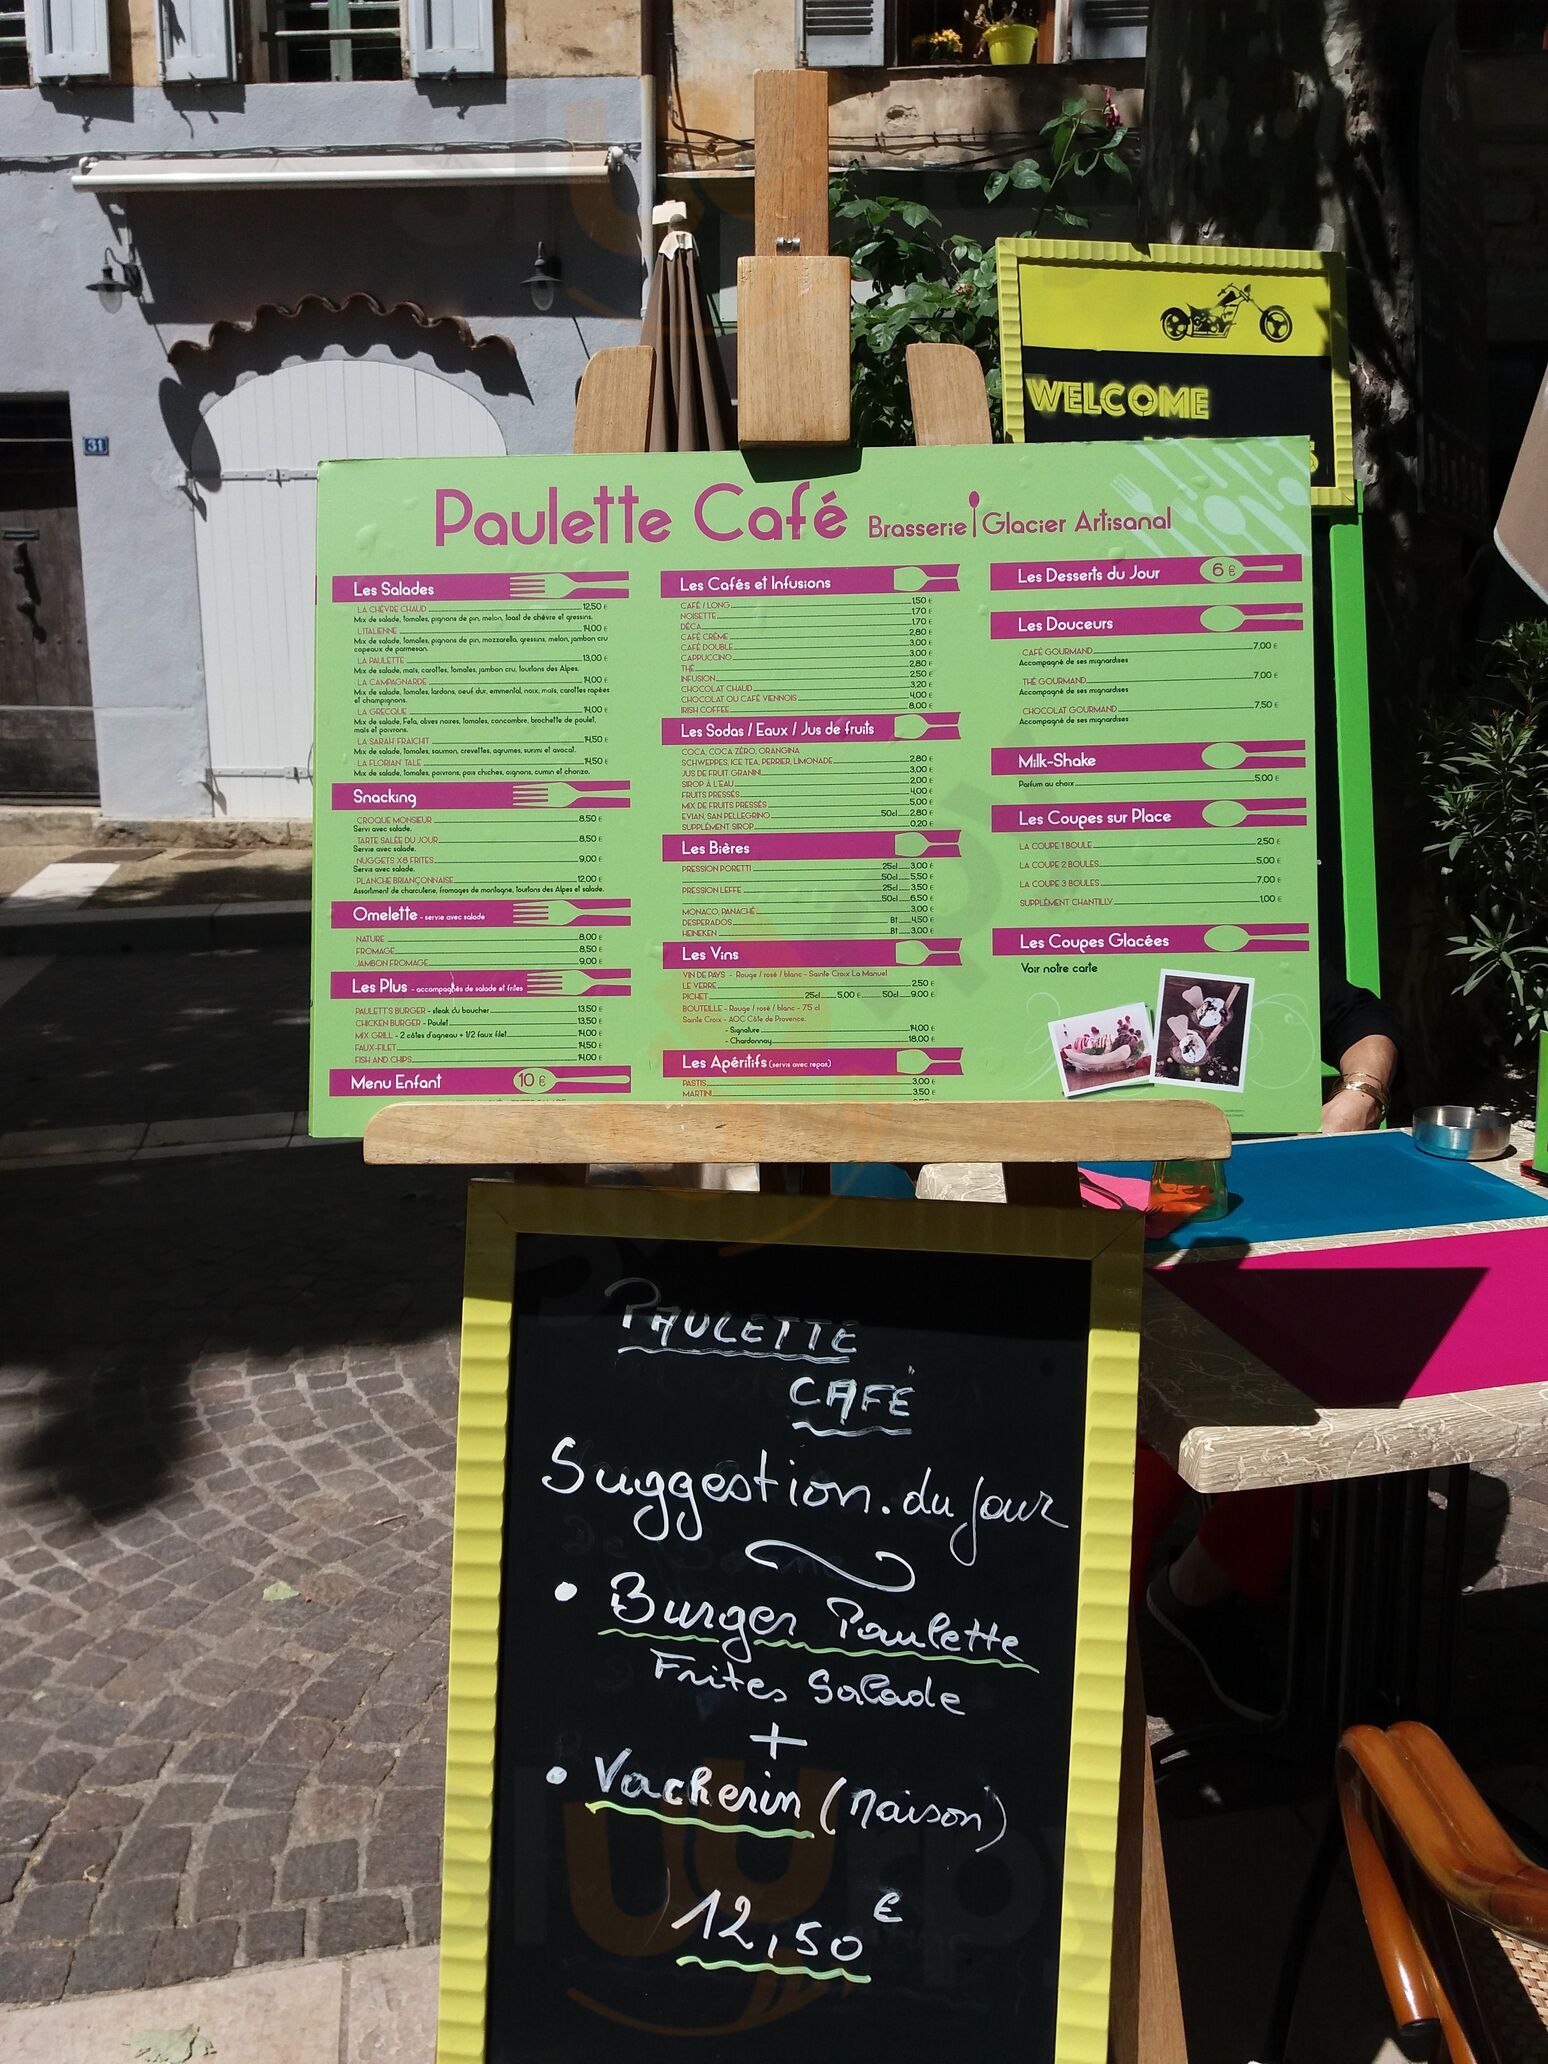 31
WELCOME
Paulette Café Brasserie Glacier Artisanal
Les Salades
LA CHÈVRE CHAUD 12,50 €
Mix de salade, tomates, pignons de pin, melon, toast de chèvre et gressins.
L'ITALIENNE 14,00 €
Mix de salade, tomates, pignons de pin, mozzarella, gressins, melon, jambon cru
copeaux de parmesan.
LA PAULETTE 13,00 €
Mix de salade, maïs, carottes, tomates, jambon cru, tourtons des Alpes.
LA CAMPAGNARDE 14,00 €
Mix de salade, tomates, lardons, oeuf dur, emmental, noix, maïs, carottes rapées
et champignons.
LA GRECQUE 14,00 €
Mix de salade, Feta, olives noires, tomates, concombre, brochette de poulet,
maïs et poivrons.
LA SARAH FRAICHIT 14,50 €
Mix de salade, tomates, saumon, crevettes, agrumes, surimi et avocat.
LA FLORIAN TALE 14,50 €
Mix de salade, tomates, poivrons, pois chiches, oignons, cumin et chorizo.
Snacking
CROQUE MONSIEUR 8,50 €
Servi avec salade.
TARTE SALÉE DU JOUR 8,50 €
Servie avec salade.
NUGGETS X8 FRITES 9,00 €
Servis avec salade.
PLANCHE BRIANÇONNAISE 12,00 €
Assortiment de charcuterie, fromages de montagne, tourtons des Alpes et salade.
Omelette - servie avec salade
NATURE 8,00 €
FROMAGE 8,50 €
JAMBON FROMAGE 9,00 €
Les Plus - accompagnés de salade et frites
PAULETT'S BURGER - steak du boucher 13,50 €
CHICKEN BURGER - Poulet 13,50 €
MIX GRILL - 2 côtes d'agneau + 1/2 faux filet 14,00 €
FAUX-FILET 14,50 €
FISH AND CHIPS 14,00 €
Menu Enfant 10 €
Les Cafés et Infusions
CAFÉ / LONG 1,50 €
NOISETTE 1,70 €
DÉCA 1,70 €
CAFÉ CRÈME 2,80 €
CAFÉ DOUBLE 3,00 €
CAPPUCCINO 3,00 €
THÉ 2,80 €
INFUSION 2,50 €
CHOCOLAT CHAUD 3,20 €
CHOCOLAT OU CAFÉ VIENNOIS 4,00 €
IRISH COFFEE 8,00 €
Les Sodas / Eaux / Jus de fruits
COCA, COCA ZÉRO, ORANGINA
SCHWEPPES, ICE TEA, PERRIER, LIMONADE 2,80 €
JUS DE FRUIT GRANINI 3,00 €
SIROP À L'EAU 2,00 €
FRUITS PRESSÉS 4,00 €
MIX DE FRUITS PRESSÉS 5,00 €
EVIAN, SAN PELLEGRINO 50cl 2,80 €
SUPPLÉMENT SIROP 0,20 €
Les Bières
PRESSION PORETTI 25cl 3,00 €
50cl 5,50 €
PRESSION LEFFE 25cl 3,50 €
50cl 6,50 €
MONACO, PANACHÉ 3,00 €
DESPERADOS Bt 4,50 €
HEINEKEN Bt 3,00 €
Les Vins
VIN DE PAYS - Rouge / rosé / blanc - Sainte Croix La Manuel
LE VERRE 2,50 €
PICHET 25cl 5,00 € 50cl 9,00 €
BOUTEILLE - Rouge / rosé / blanc - 75 cl
Sainte Croix - AOC Côte de Provence.
- Signature 14,00 €
- Chardonnay 18,00 €
Les Apéritifs (servis avec repas)
PASTIS 3,00 €
MARTINI 3,50 €
Les Desserts du Jour 6 €
Les Douceurs
CAFÉ GOURMAND 7,00 €
Accompagné de ses mignardises
THÉ GOURMAND 7,00 €
Accompagné de ses mignardises
CHOCOLAT GOURMAND 7,50 €
Accompagné de ses mignardises
Milk-Shake
Parfum au choix 5,00 €
Les Coupes sur Place
LA COUPE 1 BOULE 2,50 €
LA COUPE 2 BOULES 5,00 €
LA COUPE 3 BOULES 7,00 €
SUPPLÉMENT CHANTILLY 1,00 €
Les Coupes Glacées
Voir notre carte
PAULETTE
CAFÉ
Suggestion.du Jour
• Burger Paulette
Frites Salade
+
• Vacherin (maison)
12,50 €